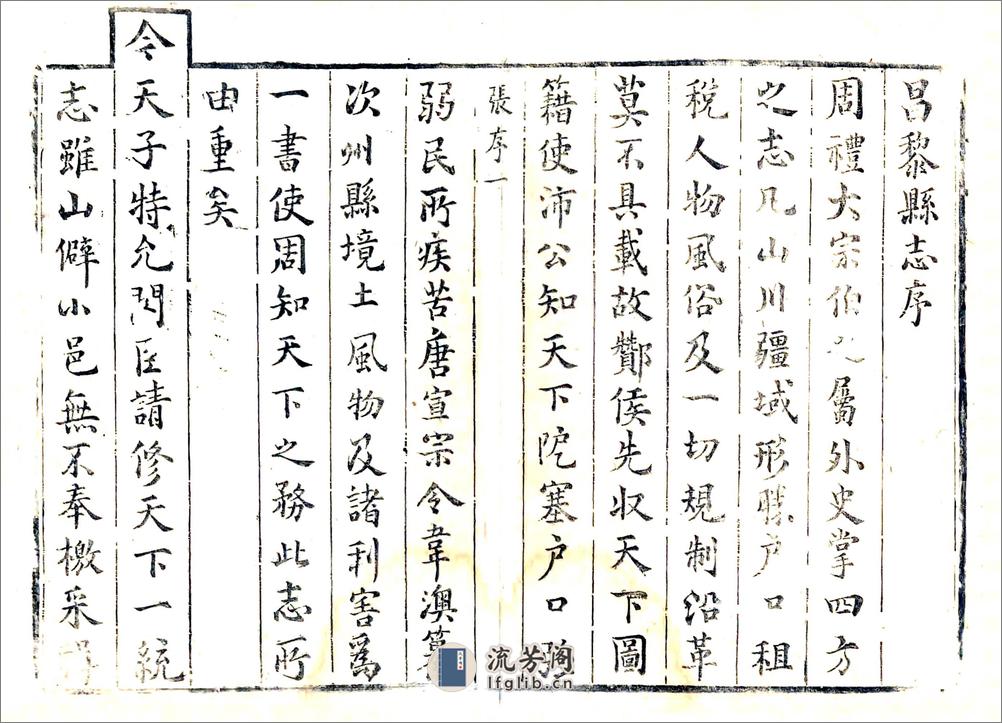 昌黎縣志序
周禮大宗伯之屬外史掌四方
之志凡山川疆域形勝户口租
稅人物風俗及一切規制沿革
莫不具載故酇侯先收天下圖
籍使沛公知天下阨塞户口強
張序一
弱民所疾苦唐宣宗令韋澳纂
次州縣境土風物及諸利害爲
一書使周知天下之務此志所
由重矣
今天子特允閣臣請修天下一統
志雖山僻小邑無不奉檄采
流芳阁
lfglib.cn